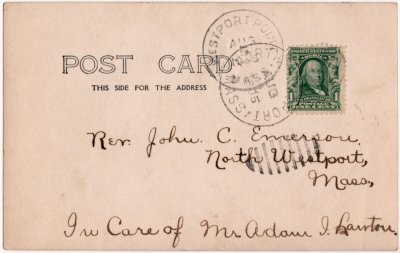 POST CARD
THIS SIDE FOR THE ADDRESS
WESTPORT POINT
AUG
MASS
1
Rev. John. C. Emerson.
North Westport,
Mass,
In Care of Mr Adam I. Lawton.